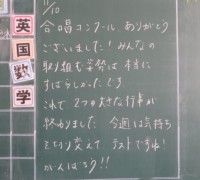 11/10
合唱コンクール ありがとう
ございました！みんなの
取り組む姿勢は 本当に
すばらしかったです。
これで 2つの大きな行事が
終わりました 今週は気持ち
を切り変えて テストで
がんばろう!!
英
国
数
学